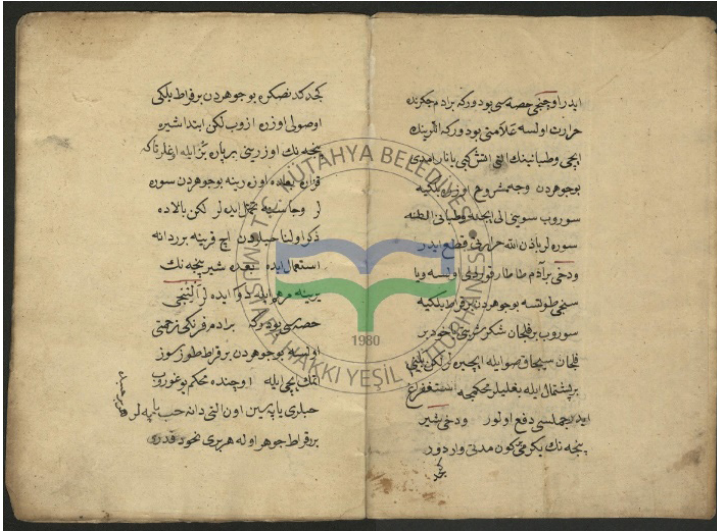 ایدر اوچنجی حصه سی بودور که بر ادم جکرنده
حرارت اولسه علامتی بودور که اللرینك
ایچی وطبانینك التی اتش کبی یانار ایمدی
بوجوهردن وجه مشروح اوزره بلکیه
سوروب سوینی الی ایچنه وطبانی التنه
سوره لر باذن الله حرارتی قطع ایدر
ودخی بر آدم طاطار قوردی اولسه ویا
سنجی طوتسه بوجوهردن بر قراط بلکیه
سوروب بر فلجان شکر شربتی یاخود بر
فلجان سیجاق صو ایله ایچیره لر لکن بلینی
بر پشتمال ایله بغلیلر محکمجه استفراغ
ایدر جملسی دفع اولور ودخی شیر
پنجه نك یکرمی کون مدتی واردور
کجدکدنصکره بوجوهردن بر قراط بلکی
اوصولی اوزره ازوب لکن ابتدا شیر
پنجه نك اوزرینی بر پاره بز ایله اوغلر تاکه
قزاره بعده اوزرینه بوجوهردن سوره
لر وجاسنه تحمل ایده لر لکن بالاده
ذکر اولنان حبلردن اچ قرینه بر ردانه
استعمال ایده بعده شیر پنجه نك
یرینه مرهم ایله دوا ایده لر آلتنجی
حصه سی بودور که بر ادم فرنکی زحمتی
اولسه بوجوهردن بر قراط طوز سوز
اتمك ایچی ایله اوچنده محکم یوغوروب
حبلری یاپه سین اون التی دانه حب یاپه لر
بر قراط جوهر اوله هر بری نخود قدر
KÜTAHYA BELEDİYESİ
MUSTAFA HAKKI YEŞİL KÜTÜPHANESİ
1980